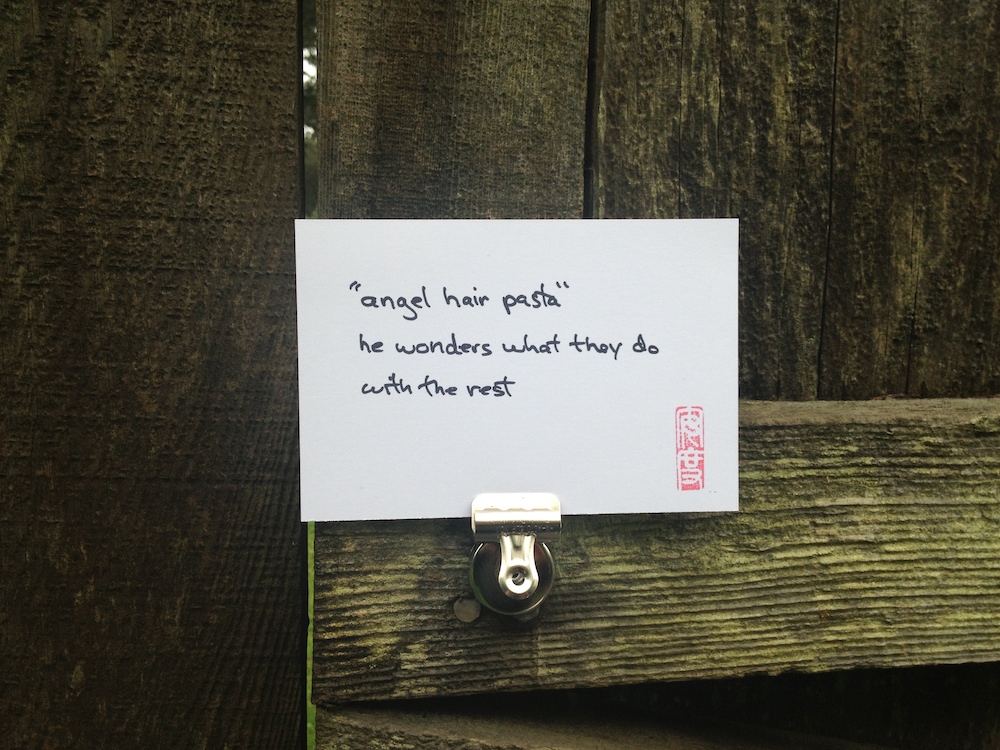 "angel hair pasta"
he wonders what they do
with the rest